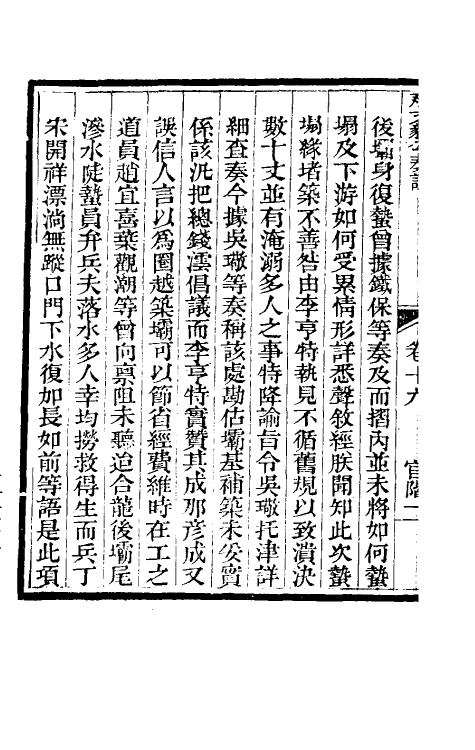 卷十九
後壩身復蟄曾據鐵保等奏及而摺內並未將如何蟄
塌及下游如何受累情形詳悉聲敘經朕開知此次蟄
塌緣堵築不善咎由李亨特執見不循舊規以致潰決
數十丈並有淹溺多人之事特降諭旨令吳璥托津詳
細查奏今據吳璥等奏稱該處勘估壩基補築未妥實
係該汛把總錢澐倡議而李亨特實贊其成那彥成又
誤信人言以為圈越築壩可以節省經費維時在工之
道員趙宜喜葉觀潮等曾向稟阻未聽迨合龍後壩尾
滲水陡蟄員弁兵夫落水多人幸均撈救得生而兵丁
宋開祥漂淌無蹤口門下水復加長如前等語是此項